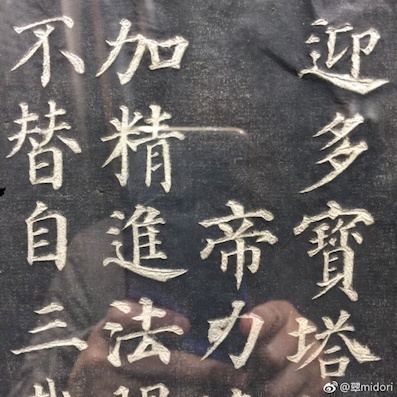 迎多寶塔
帝力
加精進法
不替自三
@翠midori